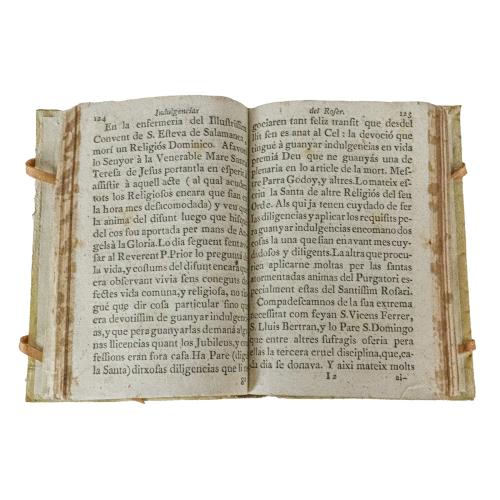 124
Indulgencias
En la enfermeria del Illustrissim
Convent de S. Esteva de Salamanca,
morí un Religiós Dominico. Afavorí
lo Senyor à la Venerable Mare Santa
Teresa de Jesus portantla en esperit
assistir à aquell acte ( al qual acuden
tots los Religiosos encara que sian en
la hora mes desacomodada) y veu que
la anima del difunt luego que hisqué
del cos fou aportada per mans de An-
gels à la Gloria. Lo dia seguent sentá
sar al Reverent P. Prior lo preguntá
la vida, y costums del difunt encara que
era observant vivia sens coneguts
fectes vida comuna, y religiosa, no tin
gué que dir cosa particular fino que
era devotissim de guanyar indulgenci-
as, y que pera guanyarlas demaná algu-
nas llicencias quant los Jubileus, y con
fessions eran fora casa Ha Pare (digué
la Santa) ditxosas diligencias que li ne
del Roser.
125
gociaren tant feliz transit que desde
llit sen es anat al Cel : la devoció que
tingué à guanyar indulgencias en vida
premiá Deu que ne guanyás una de
plenaria en lo article de la mort. Mes-
tre Parra Godoy, y altres. Lo mateix es-
eriu la Santa de altre Religiós del seu
Orde. Als qui ja tenen cuydado de fer
las diligencias y aplicar los requisits pe-
ra guanyar indulgencias encomano dos
cosas la una que sian en avant mes cuy-
dadosos y diligents. La altra que procu-
rien aplicarne moltas per las santas
atormentadas animas del Purgatori es-
pecialment estas del Santissim Rosari.
Compadescamnos de la sua extrema
necessitat com feyan S. Vicens Ferrer,
S. Lluis Bertran, y lo Pare S. Domingo
que entre altres sufragis oferia pera
ellas la tercera cruel disciplina, que, ca-
da dia se donava. Y aixi mateix molts
I 2
al-